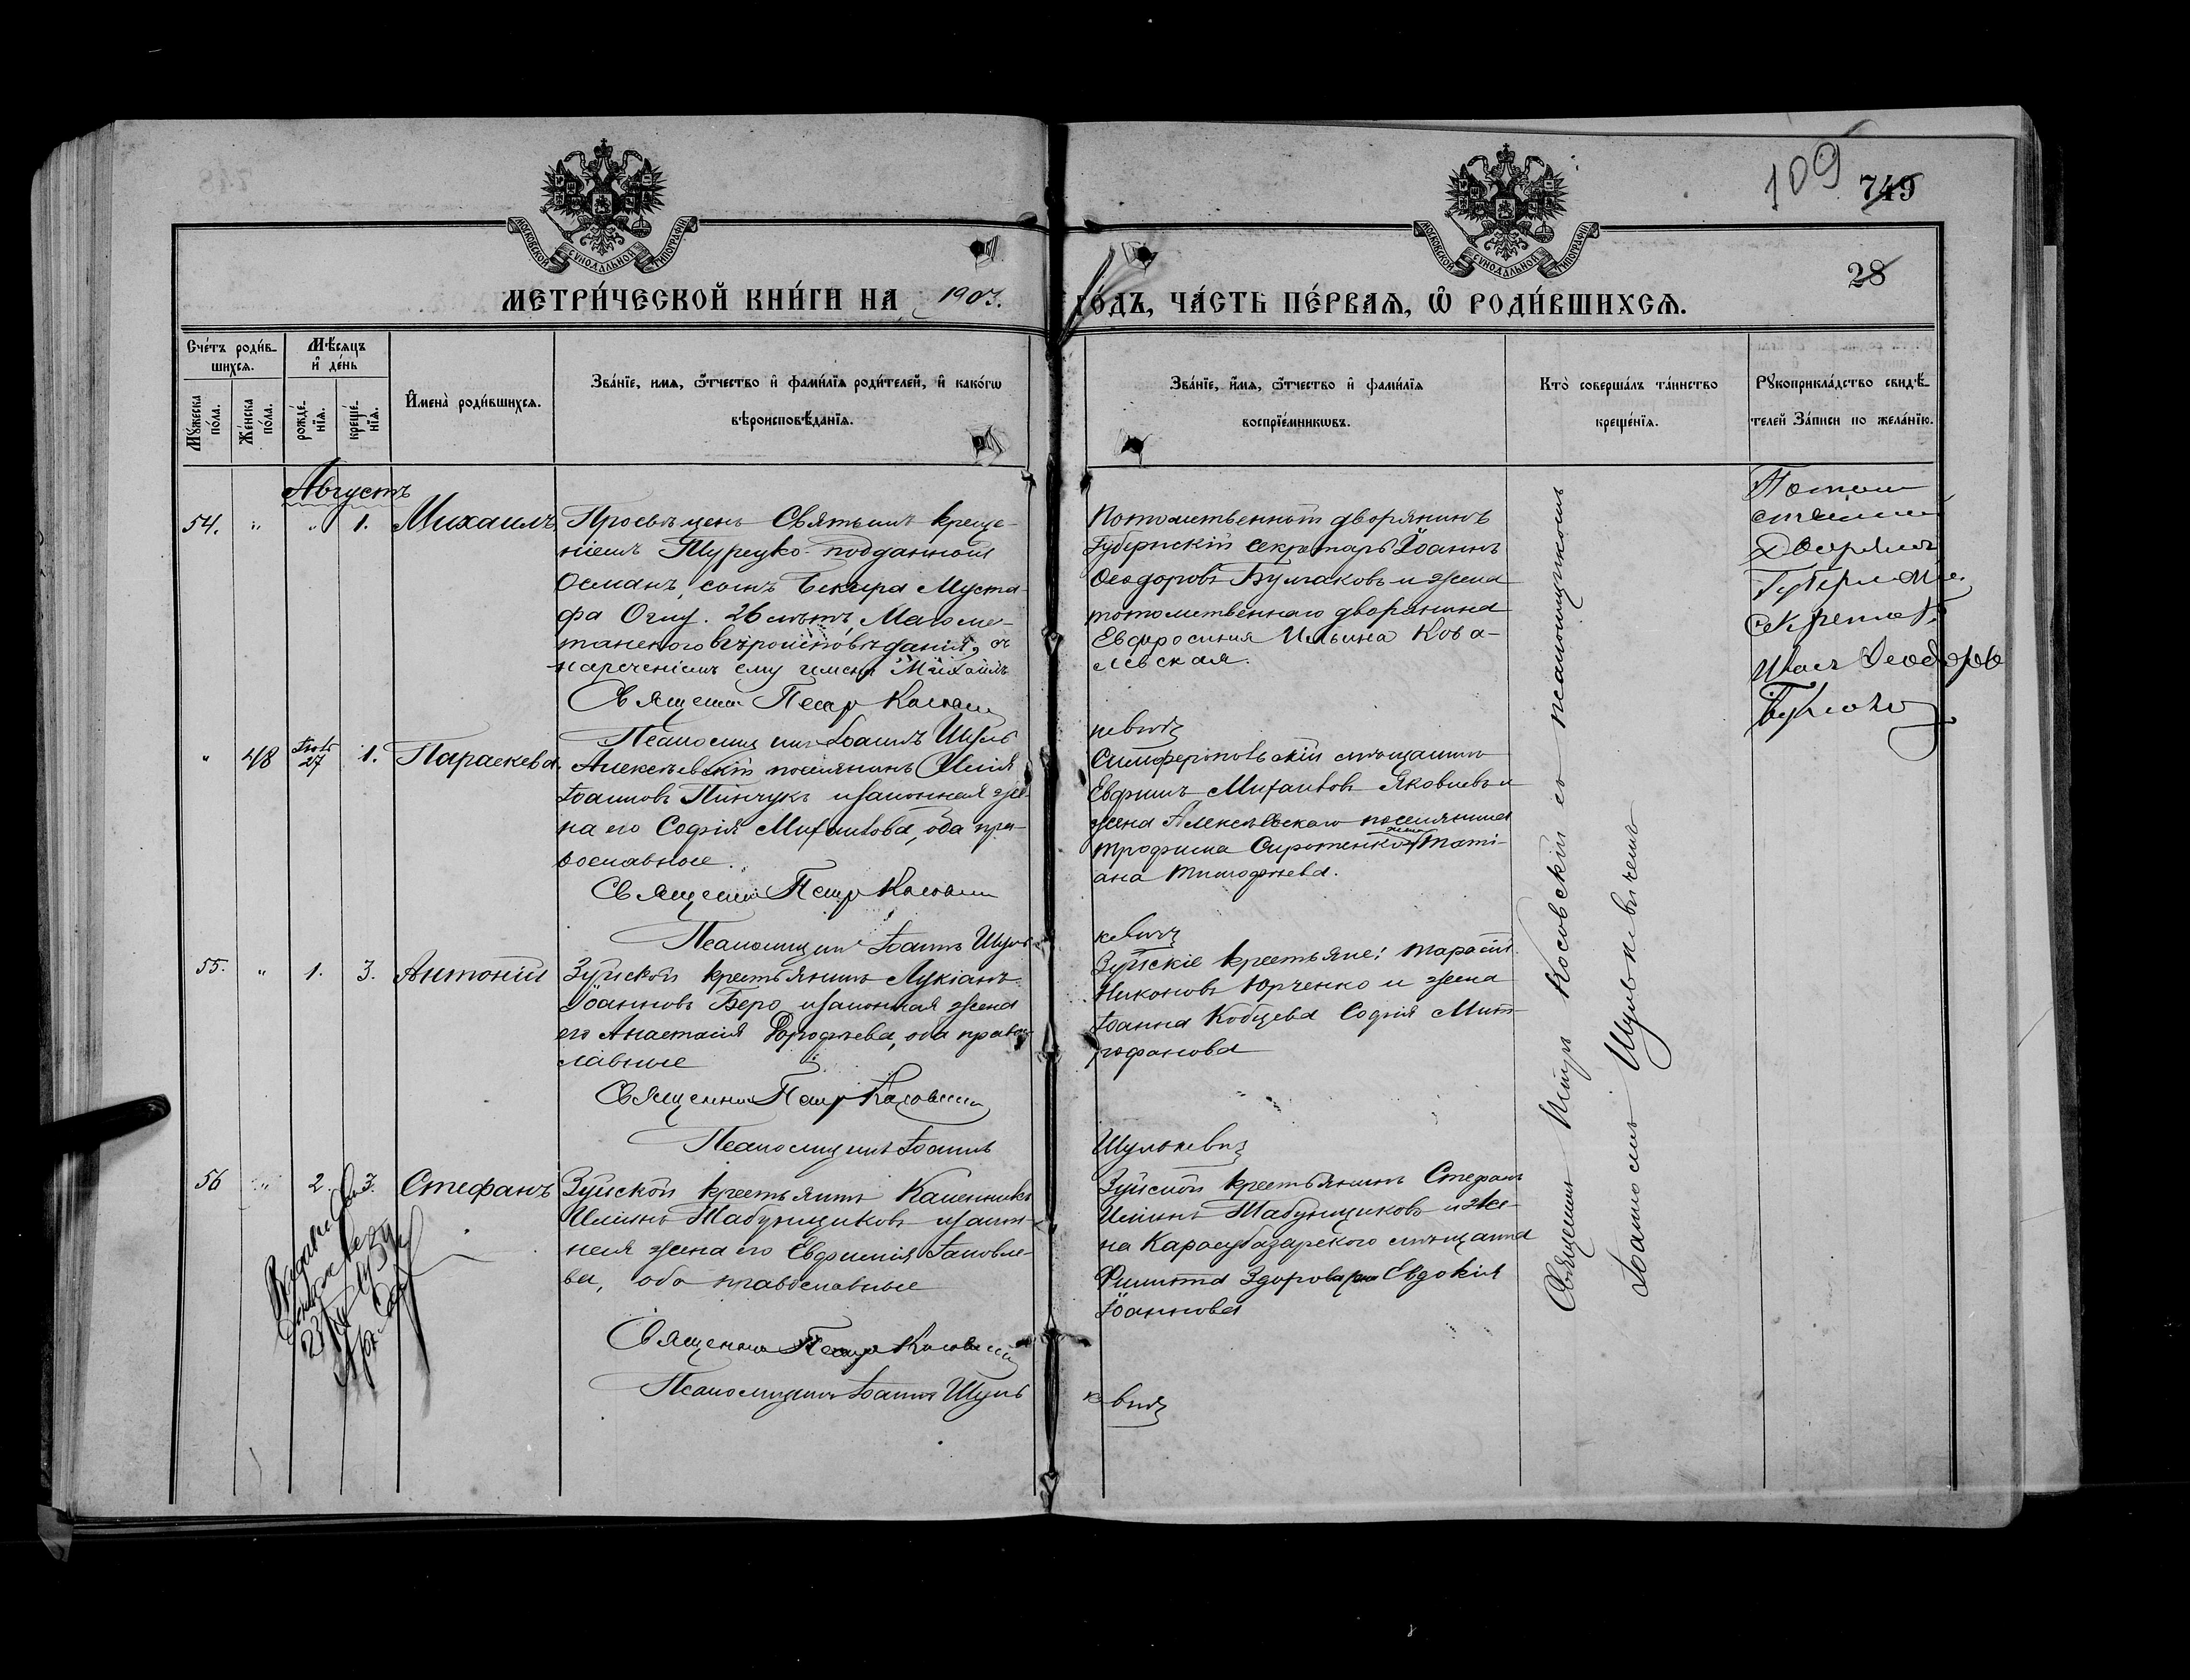 109
749
28
МОСКОВСКОЙ СѴНОДАЛЬНОЙ ТИПОГРАФІИ
МОСКОВСКОЙ СѴНОДАЛЬНОЙ ТИПОГРАФІИ
МЕТРИ́ЧЕСКОЙ КНИ́ГИ НА 1903.
ГО́ДЪ, ЧА́СТЬ ПЕ́РВАѦ, Ѿ РОДИ́ВШИХСѦ.
Сче́тъ роди́в-
шихсѧ.
Мѣ́сѧцъ
и҆ де́нь
Мꙋ́жеска
по́ла.
Же́нска
по́ла.
рожде́-
нїѧ.
креще́-
нїѧ.
И҆мена̀ роди́вшихсѧ.
Зва́нїе, имѧ, ѻ҆́тчество и҆ фами́лїѧ роди́телей, и҆ како́гѡ
вѣроисповѣ́данїѧ.
Зва́нїе, и҆́мѧ, ѻ҆́тчество и҆ фами́лїѧ
воспрїе́мникѡвъ.
Кто̀ соверша́лъ та́инство
креще́нїѧ.
Рꙋкоприкла́дство свидѣ́-
телей За́писи по жела́нїю.
Августъ
54. " " 1. Михаилъ
Просвѣщенъ Святымъ креще-
ніемъ Турецко-подданный
Османъ, сынъ Бекира Муста-
фа Оглу. 26 лѣтъ, Магоме-
танского вѣроисповѣданія, съ
нареченіемъ ему имени Михаилъ
Священникъ Петръ Косовскій
Псаломщикъ Іоаннъ Шуль
кевичъ
Потомственный дворянинъ
Губернскій секретарь Іоаннъ
Ѳеодоровъ Булгаковъ и жена
потомственнаго дворянина
Евфросинія Ильина Кова-
левская.
Потом
ственный
Дворянинъ
Губернскій
Секретарь
Иванъ Ѳеодоровъ
Булгаковъ
" 48 27 1. Параскева
Алексѣевскій поселянинъ Илія
Іоанновъ Пинчукъ и законная же-
на его Софія Михаилова, оба пра-
вославные.
Священникъ Петръ Косовскій
Псаломщикъ Іоаннъ Шуль
кевичъ
Симферопольскій мѣщанинъ
Евфимъ Михаиловъ Яковлевъ и
жена Алексѣевскаго поселянина
Трофима Сиротенко Тати-
ана Тимофѣева.
55. " 1. 3. Антоній
Зуйскій крестьянинъ Лукіанъ
Іоанновъ Беро и законная жена
его Анастасія Дорофѣева, оба право-
славные
Священникъ Петръ Косовскій
Псаломщикъ Іоаннъ
Шулькевичъ
Зуйскіе крестьяне: Тарасій
Никоновъ Юрченко и жена
Іоанна Кобцева Софія Мит-
рофанова
56 " 2. 3. Стефанъ
Зуйскій крестьянинъ Каленникъ
Иліинъ Табунщиковъ и закон-
ная жена его Евфимія Іаковле-
ва, оба православные
Священникъ Петръ Косовскій
Псаломщикъ Іоаннъ Шуль
кевичъ
Зуйскій крестьянинъ Стефанъ
Иліинъ Табунщиковъ и же-
на Карасубазарского мѣщанина
Филиппа Евдокія
Іоаннова
Священникъ Петръ Косовскій съ псаломщикомъ
Іоанномъ Шулькевичемъ